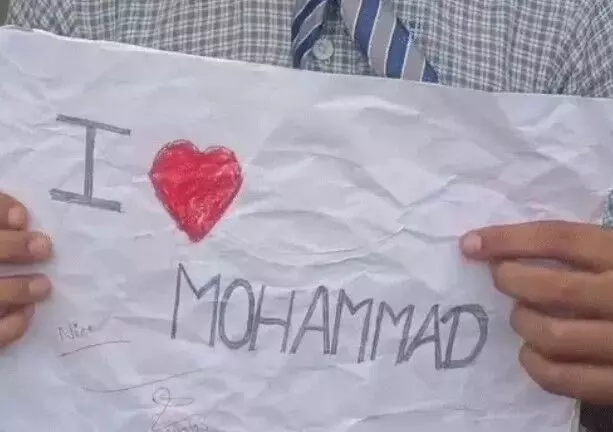 I
MOHAMMAD
Nice